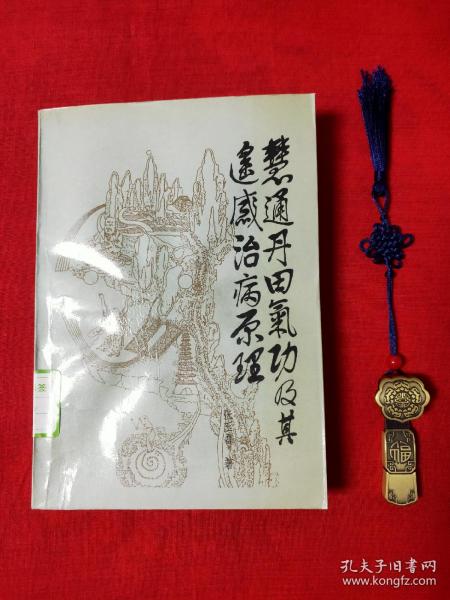 慧通丹田氣功及其
遥感治病原理
著
签
福
孔夫子旧书网
www.kongfz.com